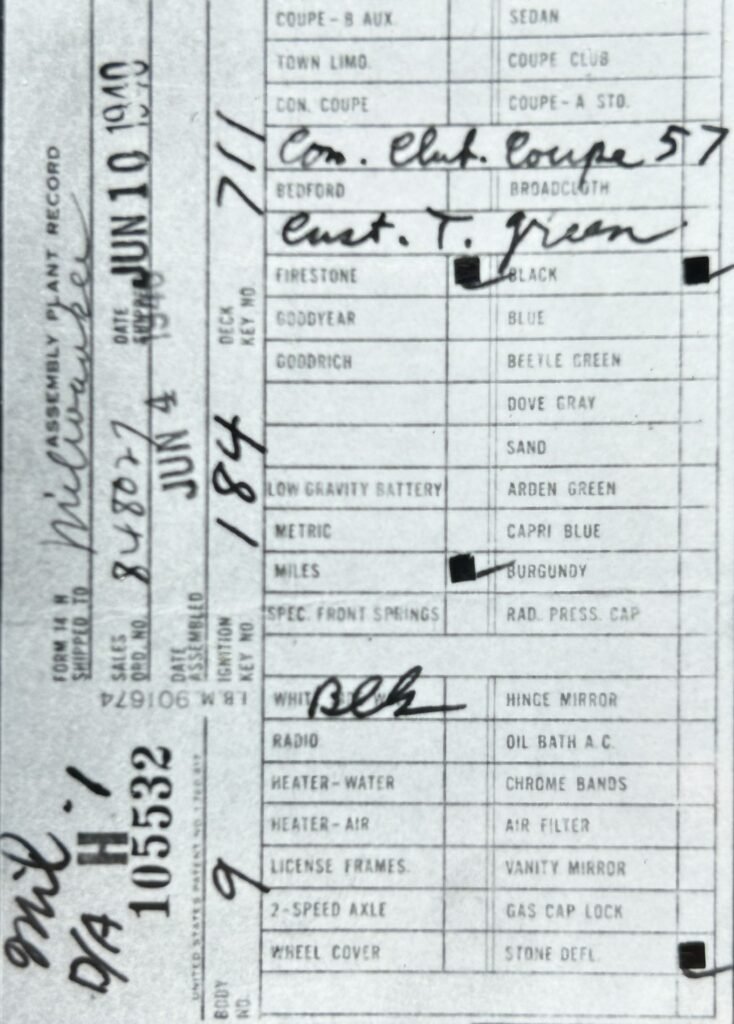 FORM 14 H ASSEMBLY PLANT RECORD
SHIPPED TO Milwaukee
SALES ORD. NO. 848027
DATE SHIPPED JUN 10 1940
DATE ASSEMBLED JUN 4 1940
IGNITION KEY NO. 184
DECK KEY NO. 711
I.B.M. 901674
UNITED STATES PATENT NO.
BODY NO. 9
Mil - 1
D/A H
105532
COUPE-B AUX. SEDAN
TOWN LIMO. COUPE CLUB
CON. COUPE COUPE-A STO.
Con. Club. Coupe 57
BEDFORD BROADCLOTH
Cust. T. green
FIRESTONE BLACK
GOODYEAR BLUE
GOODRICH BEETLE GREEN
DOVE GRAY
SAND
LOW GRAVITY BATTERY ARDEN GREEN
METRIC CAPRI BLUE
MILES BURGUNDY
SPEC. FRONT SPRINGS RAD. PRESS. CAP
Blk HINGE MIRROR
RADIO OIL BATH A.C.
HEATER-WATER CHROME BANDS
HEATER-AIR AIR FILTER
LICENSE FRAMES. VANITY MIRROR
2-SPEED AXLE GAS CAP LOCK
WHEEL COVER STONE DEFL.